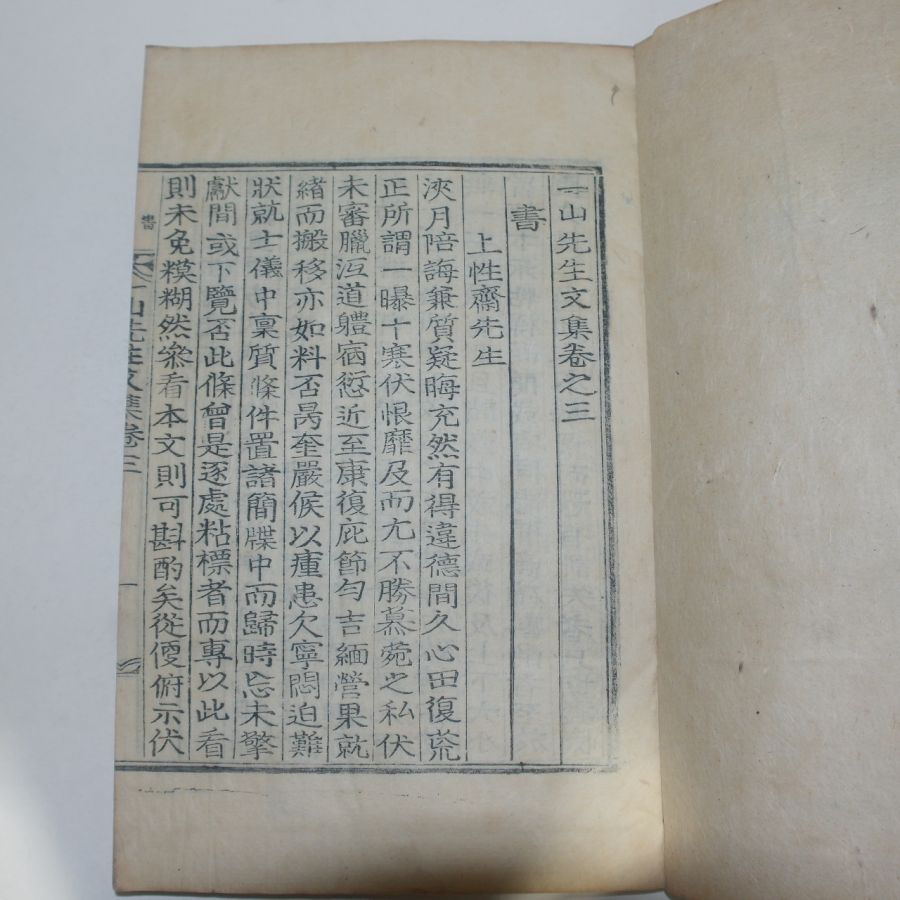 一山先生文集卷之三
書
上性齋先生
浹月陪誨兼質疑晦充然有得違德間久心田復荒
正所謂一曝十寒伏恨靡及而尤不勝慕菀之私伏
未審臘沍道體宿愆近至康復庇節勻吉緬營果就
緖而搬移亦如料否昺奎嚴候以瘇患欠寧悶迫難
狀就士儀中稟質條件置諸簡牒中而歸時忘未擎
獻間或下覽否此條曾是逐處粘標者而專以此看
則未免糢糊然參看本文則可斟酌矣從便俯示伏
書
一山先生文集卷三
一